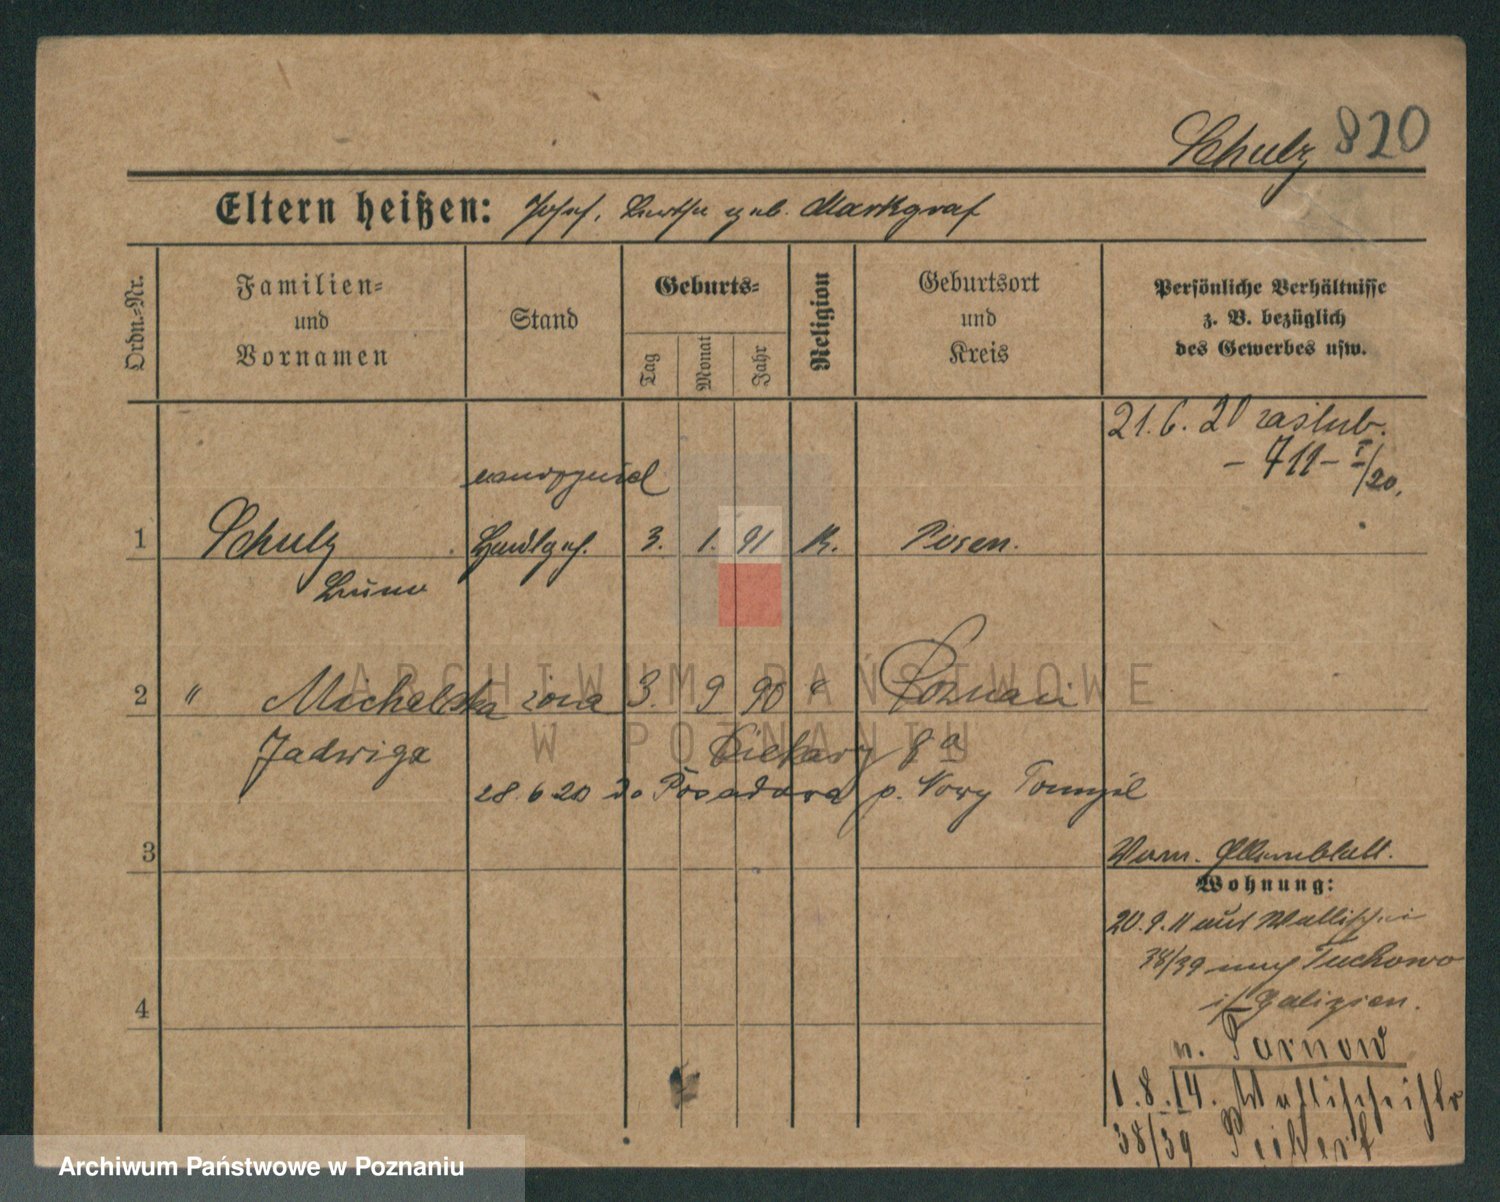 Schulz 820
Eltern heißen: Josef, Bertha geb. Markgraf
Ordn.-Nr.
Familien-
und
Vornamen
Stand
Geburts-
Tag
Monat
Jahr
Religion
Geburtsort
und
Kreis
Persönliche Verhältnisse
z. B. bezüglich
des Gewerbes usw.
21.6.20 zaślub.
- 711 - I/20.
1 Schulz Handlgeh. 3. 1. 91 K. Posen.
Bruno
2 " Michalska żona 3. 9 90 Poznań
Jadwiga Piekary 8a
28.6.20 do p. Nowy Tomyśl
3
Vom. Elternblatt.
Wohnung:
20.9.11 aus Wallischei
38/39 nach Tuchowo
i/ Galizien.
4
n. Tarnow
1.8.14. Wallischeistr
38/39
ARCHIWUM PAŃSTWOWE
W POZNANIU
Archiwum Państwowe w Poznaniu